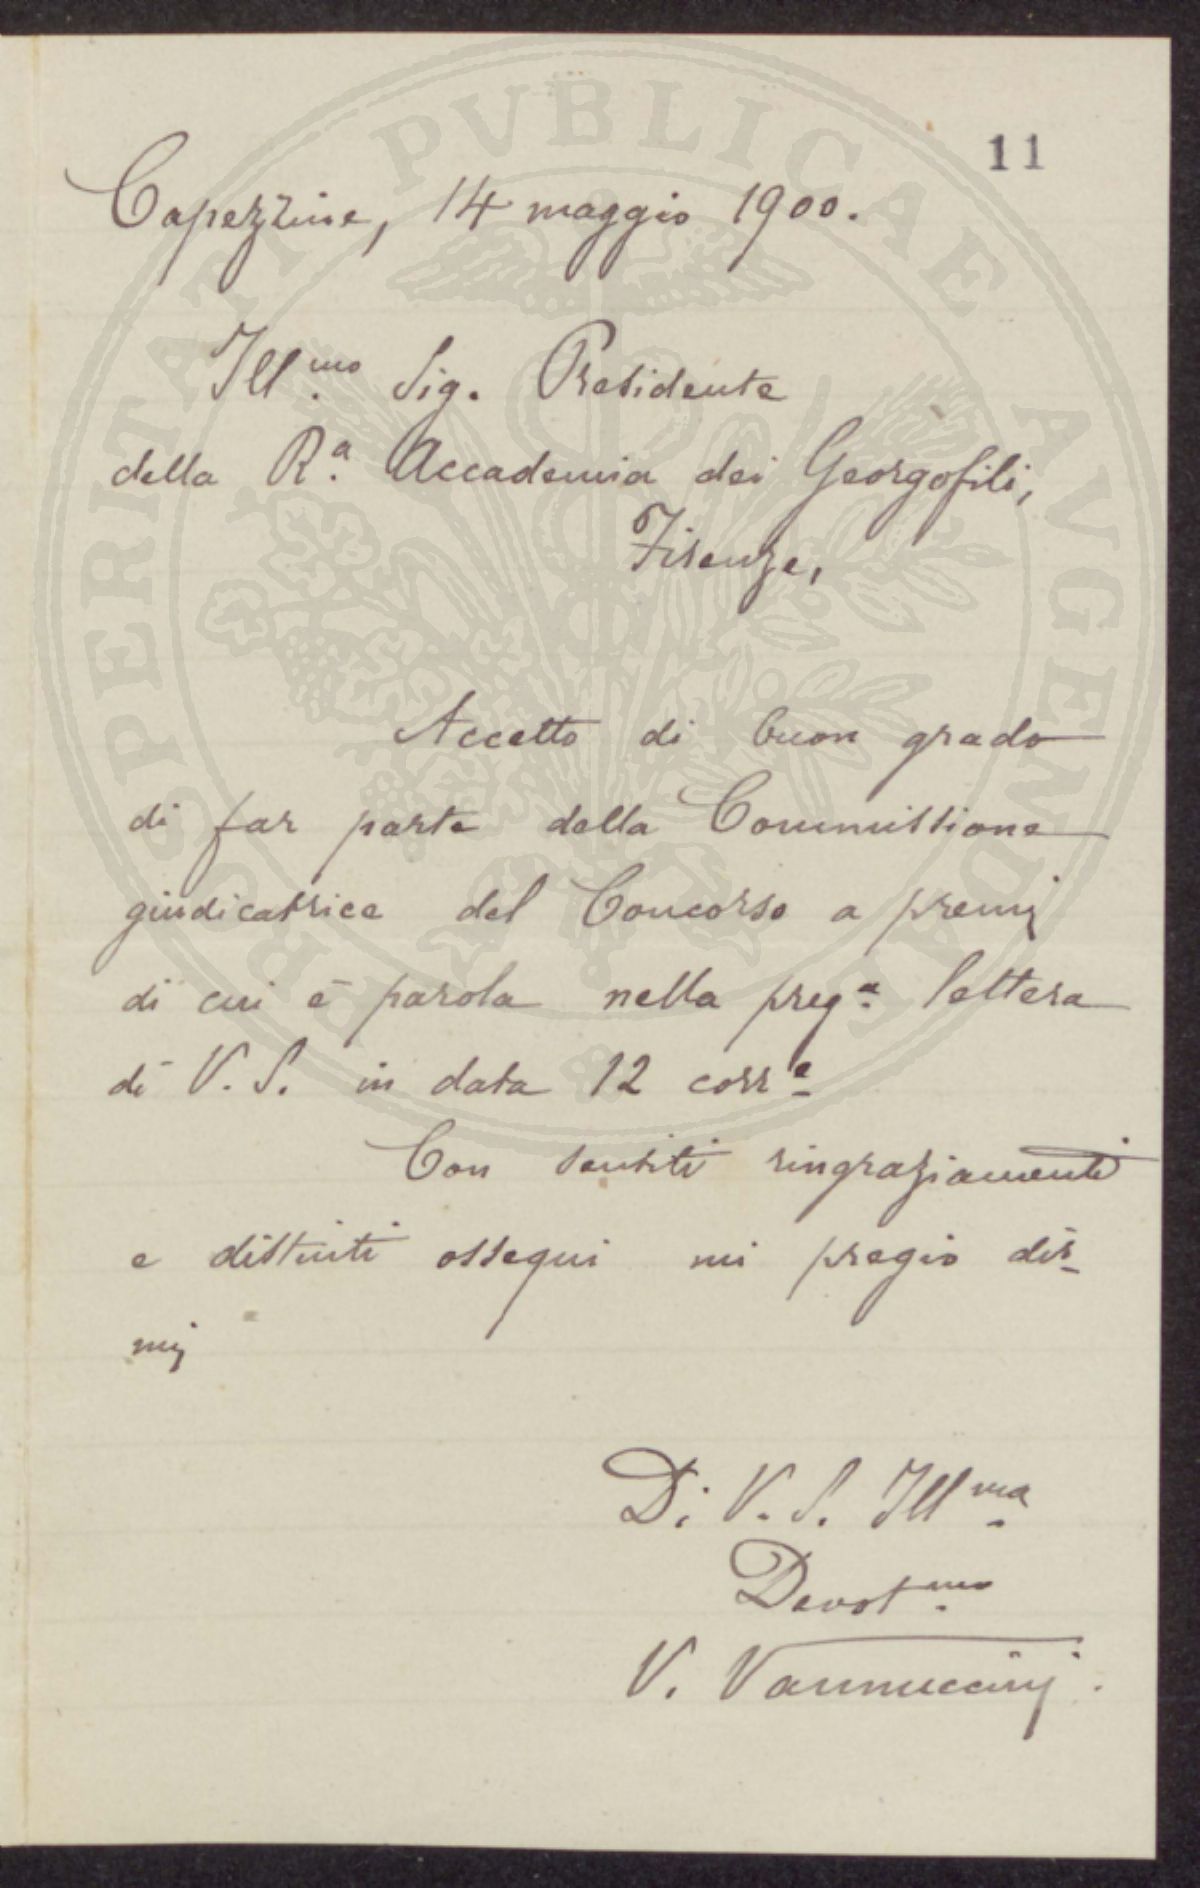 11
Capezzine, 14 maggio 1900.
Ill.mo Sig. Presidente
della R.a Accademia dei Georgofili,
Firenze,
Accetto di buon grado
di far parte della Commissione
giudicatrice del Concorso a premj
di cui è parola nella preg.a lettera
di V. S. in data 12 corr.e
Con sentiti ringraziamenti
e distinti ossequi mi pregio dir-
mi
Di V. S. Ill.ma
Devot.mo
V. Vannuccinj.
PROSPERITATI PVBLICAE AVGENDAE